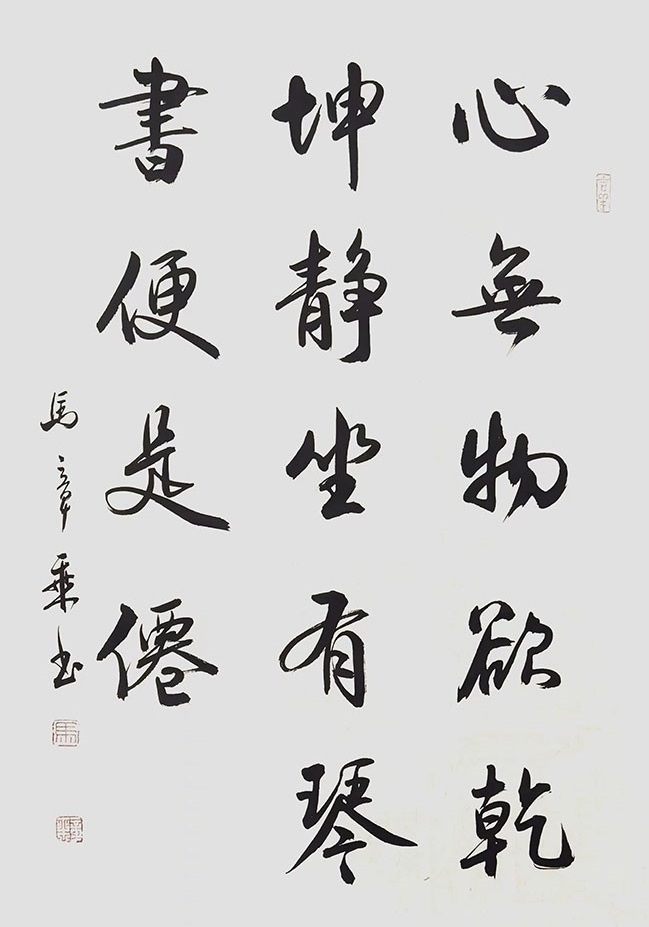 心無物欲乾
坤靜坐有琴
書便是僊
馬章乘书